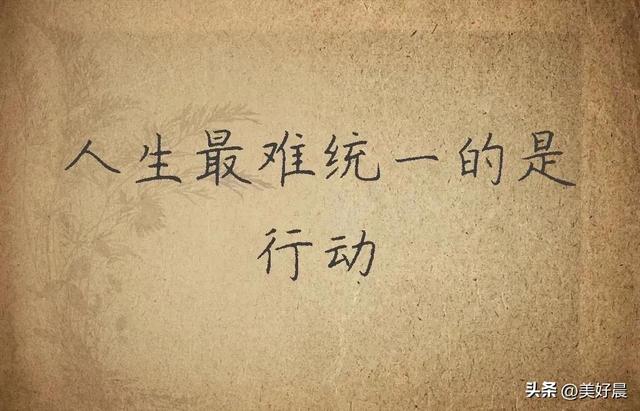 人生最难统一的是
行动
头条 @美好晨